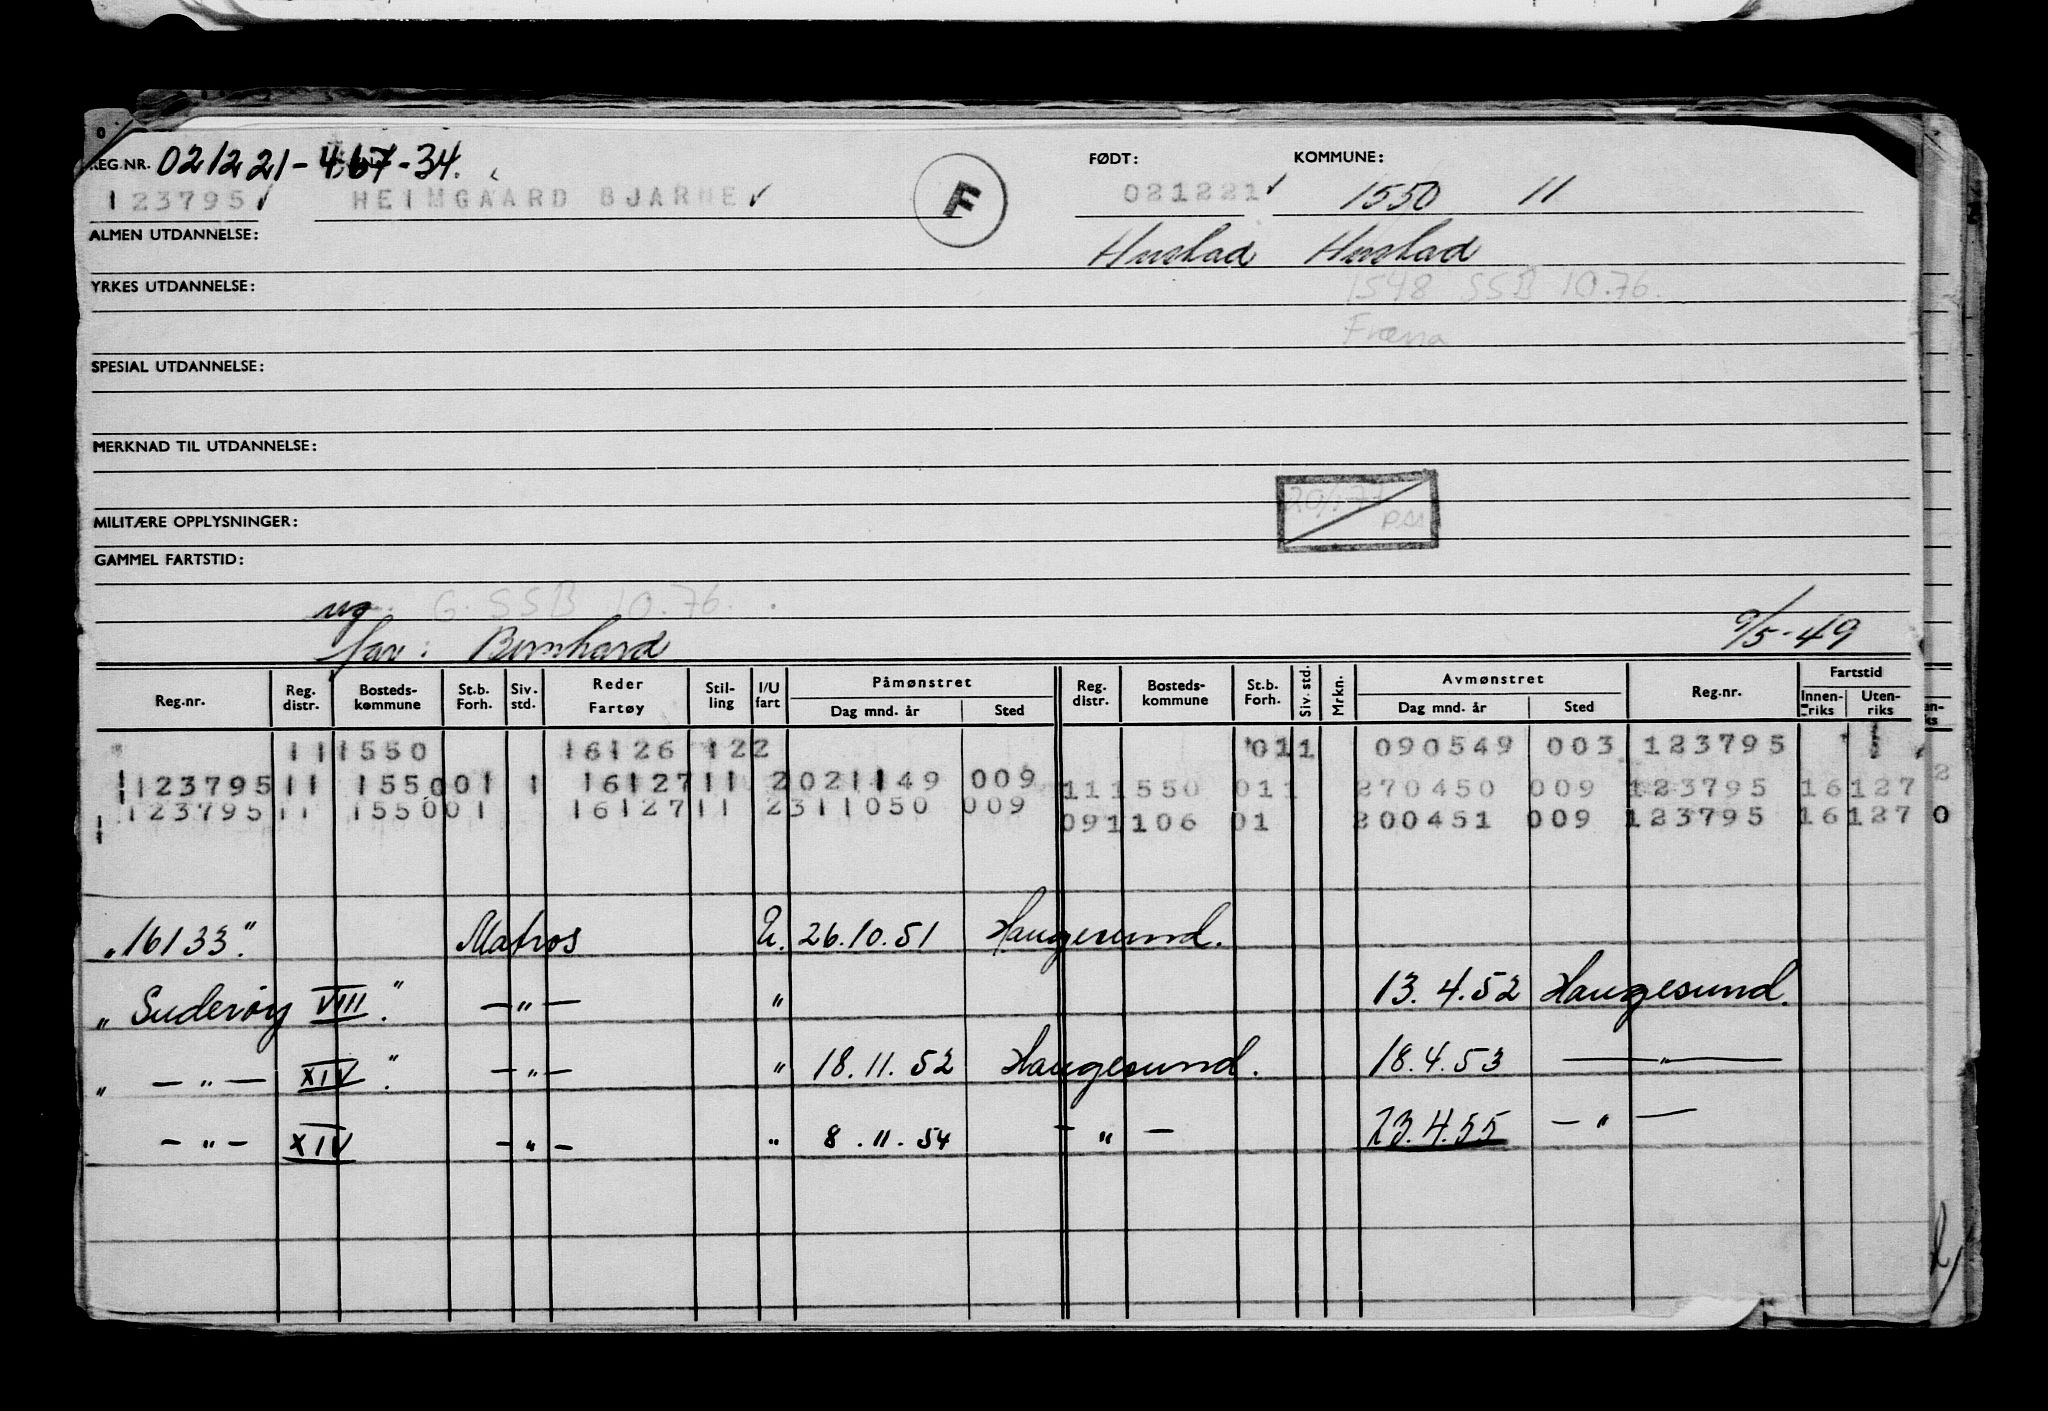 REG.NR. 021221-467-34. FØDT: KOMMUNE:
123795 ✓ HEIMGAARD BJARNE ✓ F 021221 ✓ 1550 11
ALMEN UTDANNELSE: Hustad Hustad
YRKES UTDANNELSE: 1548 SSB 10.76.
Fræna
SPESIAL UTDANNELSE:
MERKNAD TIL UTDANNELSE:
MILITÆRE OPPLYSNINGER:
GAMMEL FARTSTID:
ug. G. SSB 10.76.
far: Bernhard 9/5-49
Reg.nr. Reg. distr. Bosteds-kommune St.b. Forh. Siv. std. Reder Fartøy Stil-ling I/U fart Påmønstret Dag mnd. år Sted Reg. distr. Bosteds-kommune St.b. Forh. Siv. std. Mrkn. Avmønstret Dag mnd. år Sted Reg.nr. Fartstid Innen-riks Uten-riks
11 1550 16126 122 011 090549 003 123795
123795 11 1550 01 1 16127 11 2 021149 009 11 1550 011 270450 009 123795 16127
123795 11 1550 01 16127 11 2 311050 009 09 1106 01 200451 009 123795 16127 0
"16133." Matros U. 26.10.51 Haugesund.
"Suderøy VIII." — " — " 13.4.52 Haugesund.
" — " — XIV." — " — " 18.11.52 Haugesund. 18.4.53 — " —
— " — XIV — " — " 8.11.54 — " — 23.4.55 — " —